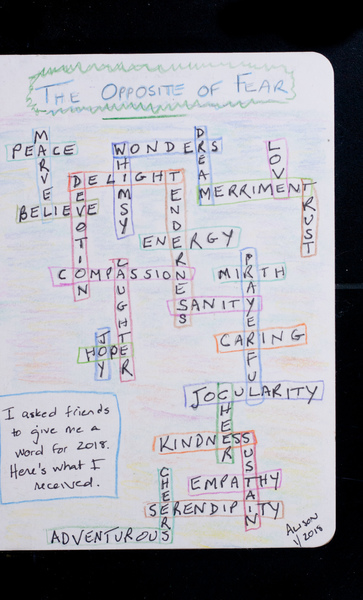 THE OPPOSITE OF FEAR
MARVEL
DREAM
PEACE
WONDERS
WHIMSY
LOVE
DELIGHT
DEVOTION
TENDERNESS
MERRIMENT
TRUST
BELIEVE
ENERGY
PRAYERFUL
COMPASSION
LAUGHTER
MIRTH
SANITY
JOY
HOPE
CARING
JOCULARITY
CHEER
I asked friends
to give me a
word for 2018.
Here's what I
received.
KINDNESS
SUSTAIN
CHEERS
EMPATHY
SERENDIPITY
ADVENTUROUS
2018